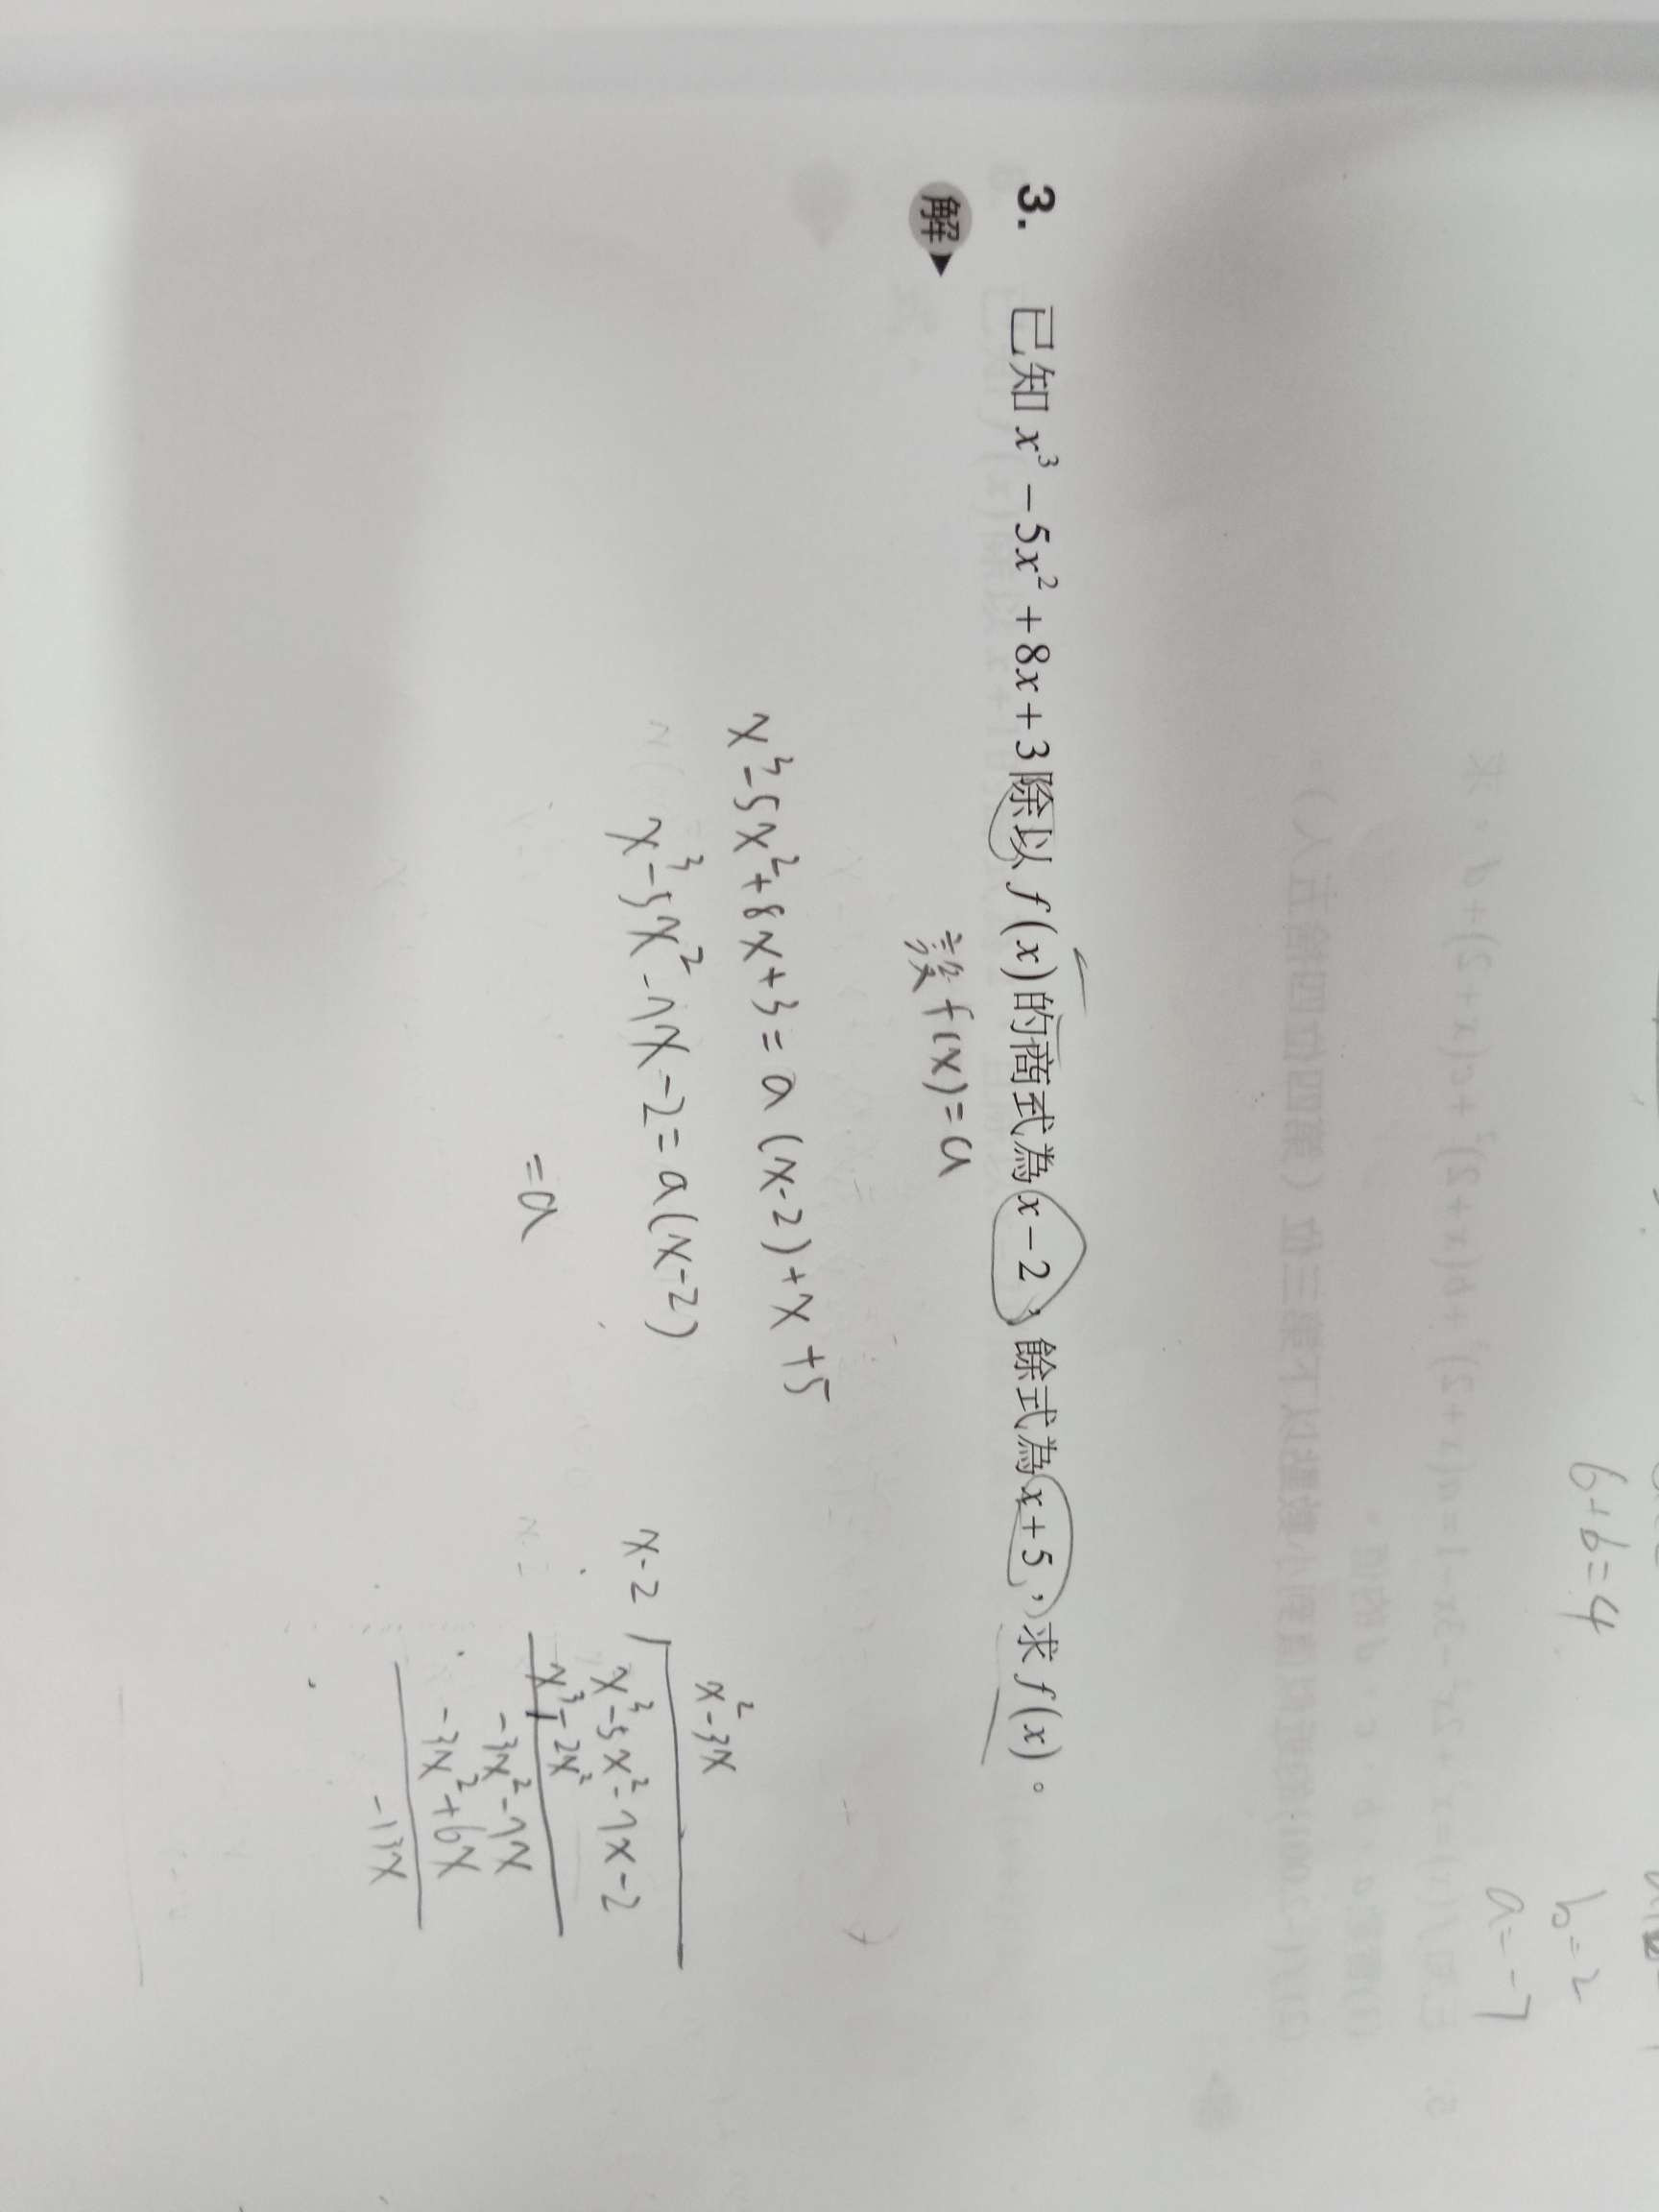 6+b=4
b=2
a=-7
3. 已知 x³－5x²＋8x＋3 除以 f(x) 的商式為 x－2，餘式為 x＋5，求 f(x)。
解
設 f(x)=a
x³-5x²+8x+3=a(x-2)+x+5
x³-5x²-7x-2=a(x-2)
=a
x²-3x
x-2 x³-5x²-7x-2
x³-2x²
-3x²-7x
-3x²+6x
-13x